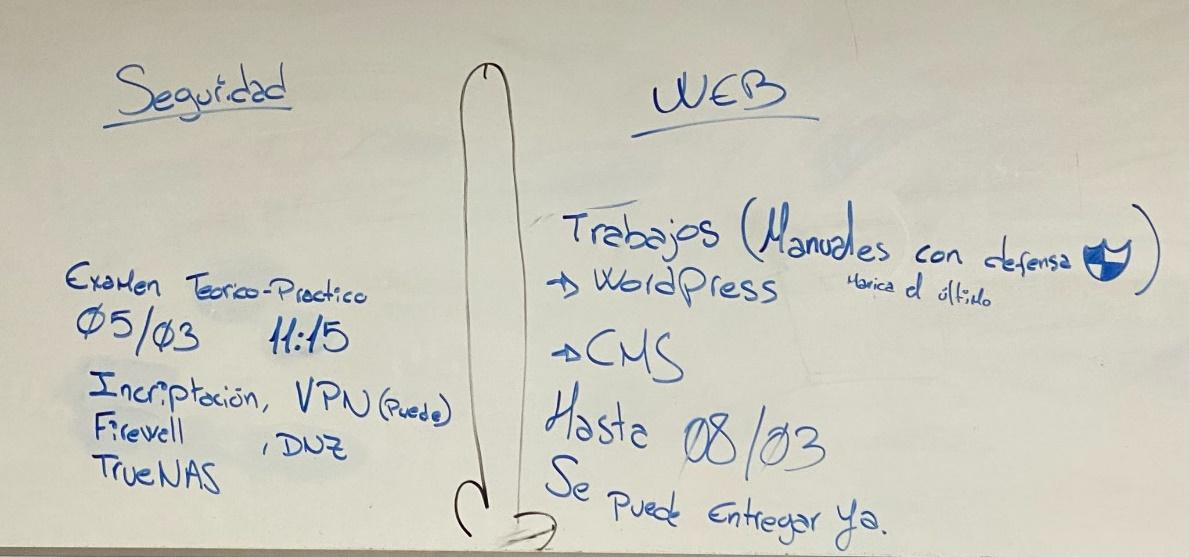 Seguridad
Examen Teorico-Practico
05/03 11:15
Incriptación, VPN (Puede)
Firewell , DNZ
TrueNAS
WEB
Trabajos (Manuales con defensa)
→ WordPress Marica el último
→ CMS
Hasta 08/03
Se puede entregar ya.